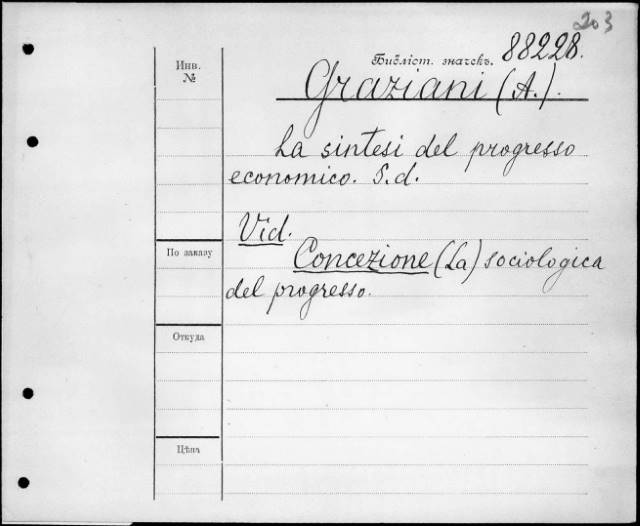 203
Инв.
№
Библіот. значекъ. 88228.
Graziani (A.).
La sintesi del progresso
economico. S. d.
Vid.
По заказу
Concezione (La) sociologica
del progresso.
Откуда
Цѣна